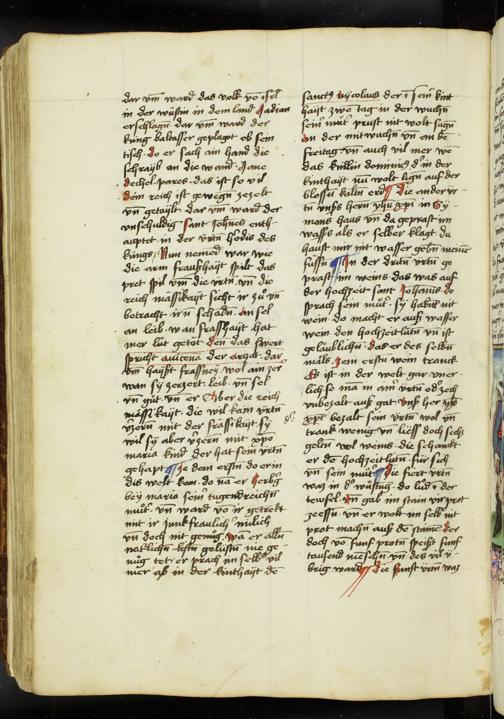 dar vm ward das volk vo isrl
in der wüstin in dem land Madian
erschlagn dar vm ward der
küng baltasser geplagt ob sein
tisch do er sach ain hand die
schraib an die wand Mane
techel pares das ist so vil
dein reich ist gewegn gezelt
vn getailt dar vm ward der
vnschuldig sant Johnes enth
auptet in der vrtn hödis des
küngs Nun nomed war wie
die arm frasshayt spilt das
pret spil vm die vrtn vn die
reich mässikayt sicht ir zu vn
betracht irn schadn an sel
an leib wan frasshayt hat
mer lüt getöt den das swert
spricht auicena der arczt dar
vm hayst frassney wol ain zer
wan sy zerzert leib vn sel
vn gůt vn er Aber die reich
mässikayt die wil kain vrtn
verern mit der frässikayt sy
wil sy aber verern mit xpo
maria kind der hat sein vrtn
gehapt Ze dem erstn do er in
dis welt kam do na er herbg
bey maria sein tugendreichn
můt vn ward vo ir getrekt
mit ir junkfraulich milich
vn doch nit genůg wa er alln
natlichn lustn gelustn nie ge
nůg tet er prach im selb vil
mer ab in der kinthayt de
sanctus Nycolaus der i sein kint
hayt zwo tag in der wuchn
sein můt prust nit wolt sugn
an der mitwuchn vn an de
freitag vn auch vil mer wo
das kindlin dominicus d in der
kinthayt nu wolt lign auf der
blossn kaltn erd die ander vr
tn vnss hern yhu xpi in Sy
mons haus vn da geprast im
wasss als er selber klagt du
haust mir nit wasser gebn meine
füssn In der dritn vrtn ge
prast im weins das was auf
der hochzeit sant Johanis do
sprach sein můt sy habnd nit
wein do macht er auss wasser
wein den hochzeitlütn vn ist
gelaublichn das er des selbn
mals zem erstn wein tranck
Es ist in der welt gar vner
lich so ma in aim vrtn od zech
vnbezalt auss gat vnss her yhs
xps bezalt sein vrtn wol vn
trank wenig vn liess doch sech
geltn wol weins die schankt
er de hochzeitlutn für sich
vn sein můt die fiert vrtn
was in d wüstug do lůd i der
tewfel vn gab im stain vn prot
zeessn vn er wolt im selb nit
prot machn auss de stainē der
doch vo fünf protn speist fünf
tausend menschn vn des vil v
brig ward die fünft vrtn was